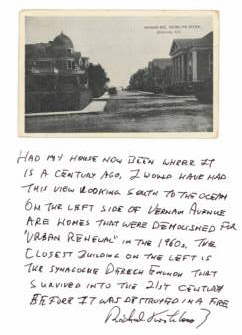 HAD MY HOUSE NOW BEEN WHERE IT
IS A CENTURY AGO, I WOULD HAVE HAD
THIS VIEW LOOKING SOUTH TO THE OCEAN
ON THE LEFT SIDE OF VERNAM AVENUE
ARE HOMES THAT WERE DEMOLISHED FOR
"URBAN RENEWAL" IN THE 1960s. THE
CLOSEST BUILDING ON THE LEFT IS
THE SYNAGOGUE DERECH EMUNOH THAT
SURVIVED INTO THE 21ST CENTURY
BEFORE IT WAS DESTROYED IN A FIRE